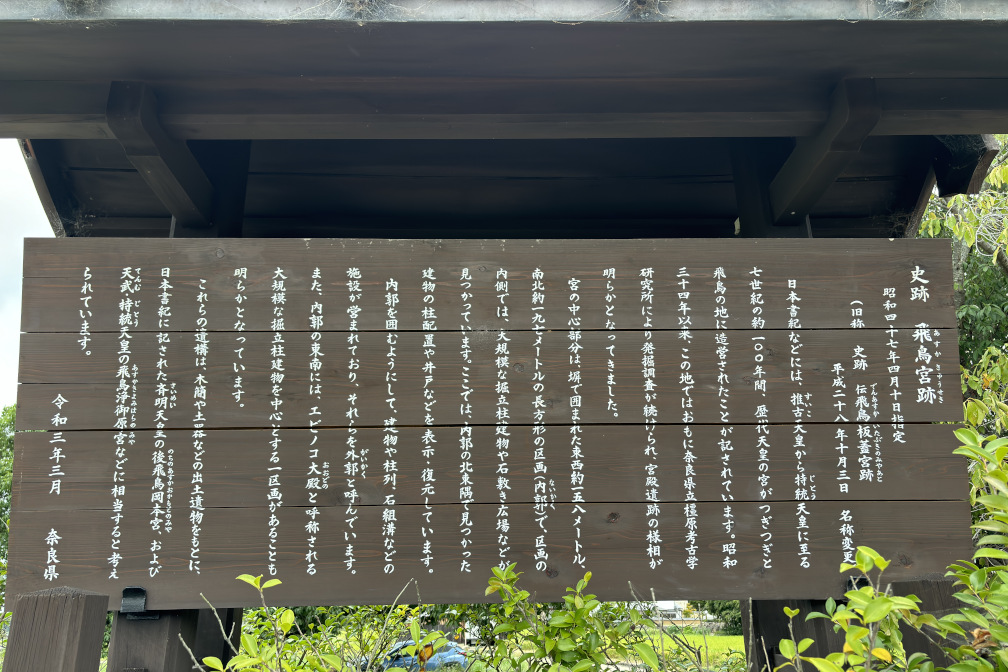 史跡 飛鳥宮跡
昭和四十七年四月十日指定
（旧称 史跡 伝飛鳥板蓋宮跡
平成二十八年十月三日 名称変更
日本書紀などには、推古天皇から持統天皇に至る
七世紀の約一〇〇年間、歴代天皇の宮がつぎつぎと
飛鳥の地に造営されたことが記されています。昭和
三十四年以来、この地ではおもに奈良県立橿原考古学
研究所により発掘調査が続けられ、宮殿遺跡の様相が
明らかとなってきました。
宮の中心部分は、塀で囲まれた東西約一五八メートル、
南北約一九七メートルの長方形の区画（内郭）で、区画の
内側では、大規模な掘立柱建物や石敷き広場などが
見つかっています。ここでは、内郭の北東隅で見つかった
建物の柱配置や井戸などを表示・復元しています。
内郭を囲むようにして、建物や柱列、石組溝などの
施設が営まれており、それらを外郭と呼んでいます。
また、内郭の東南には、エビノコ大殿と呼称される
大規模な掘立柱建物を中心とする一区画があることも
明らかとなっています。
これらの遺構は、木簡や土器などの出土遺物をもとに、
日本書紀に記された斉明天皇の後飛鳥岡本宮、および
天武・持統天皇の飛鳥浄御原宮などに相当すると考え
られています。
令和三年三月 奈良県